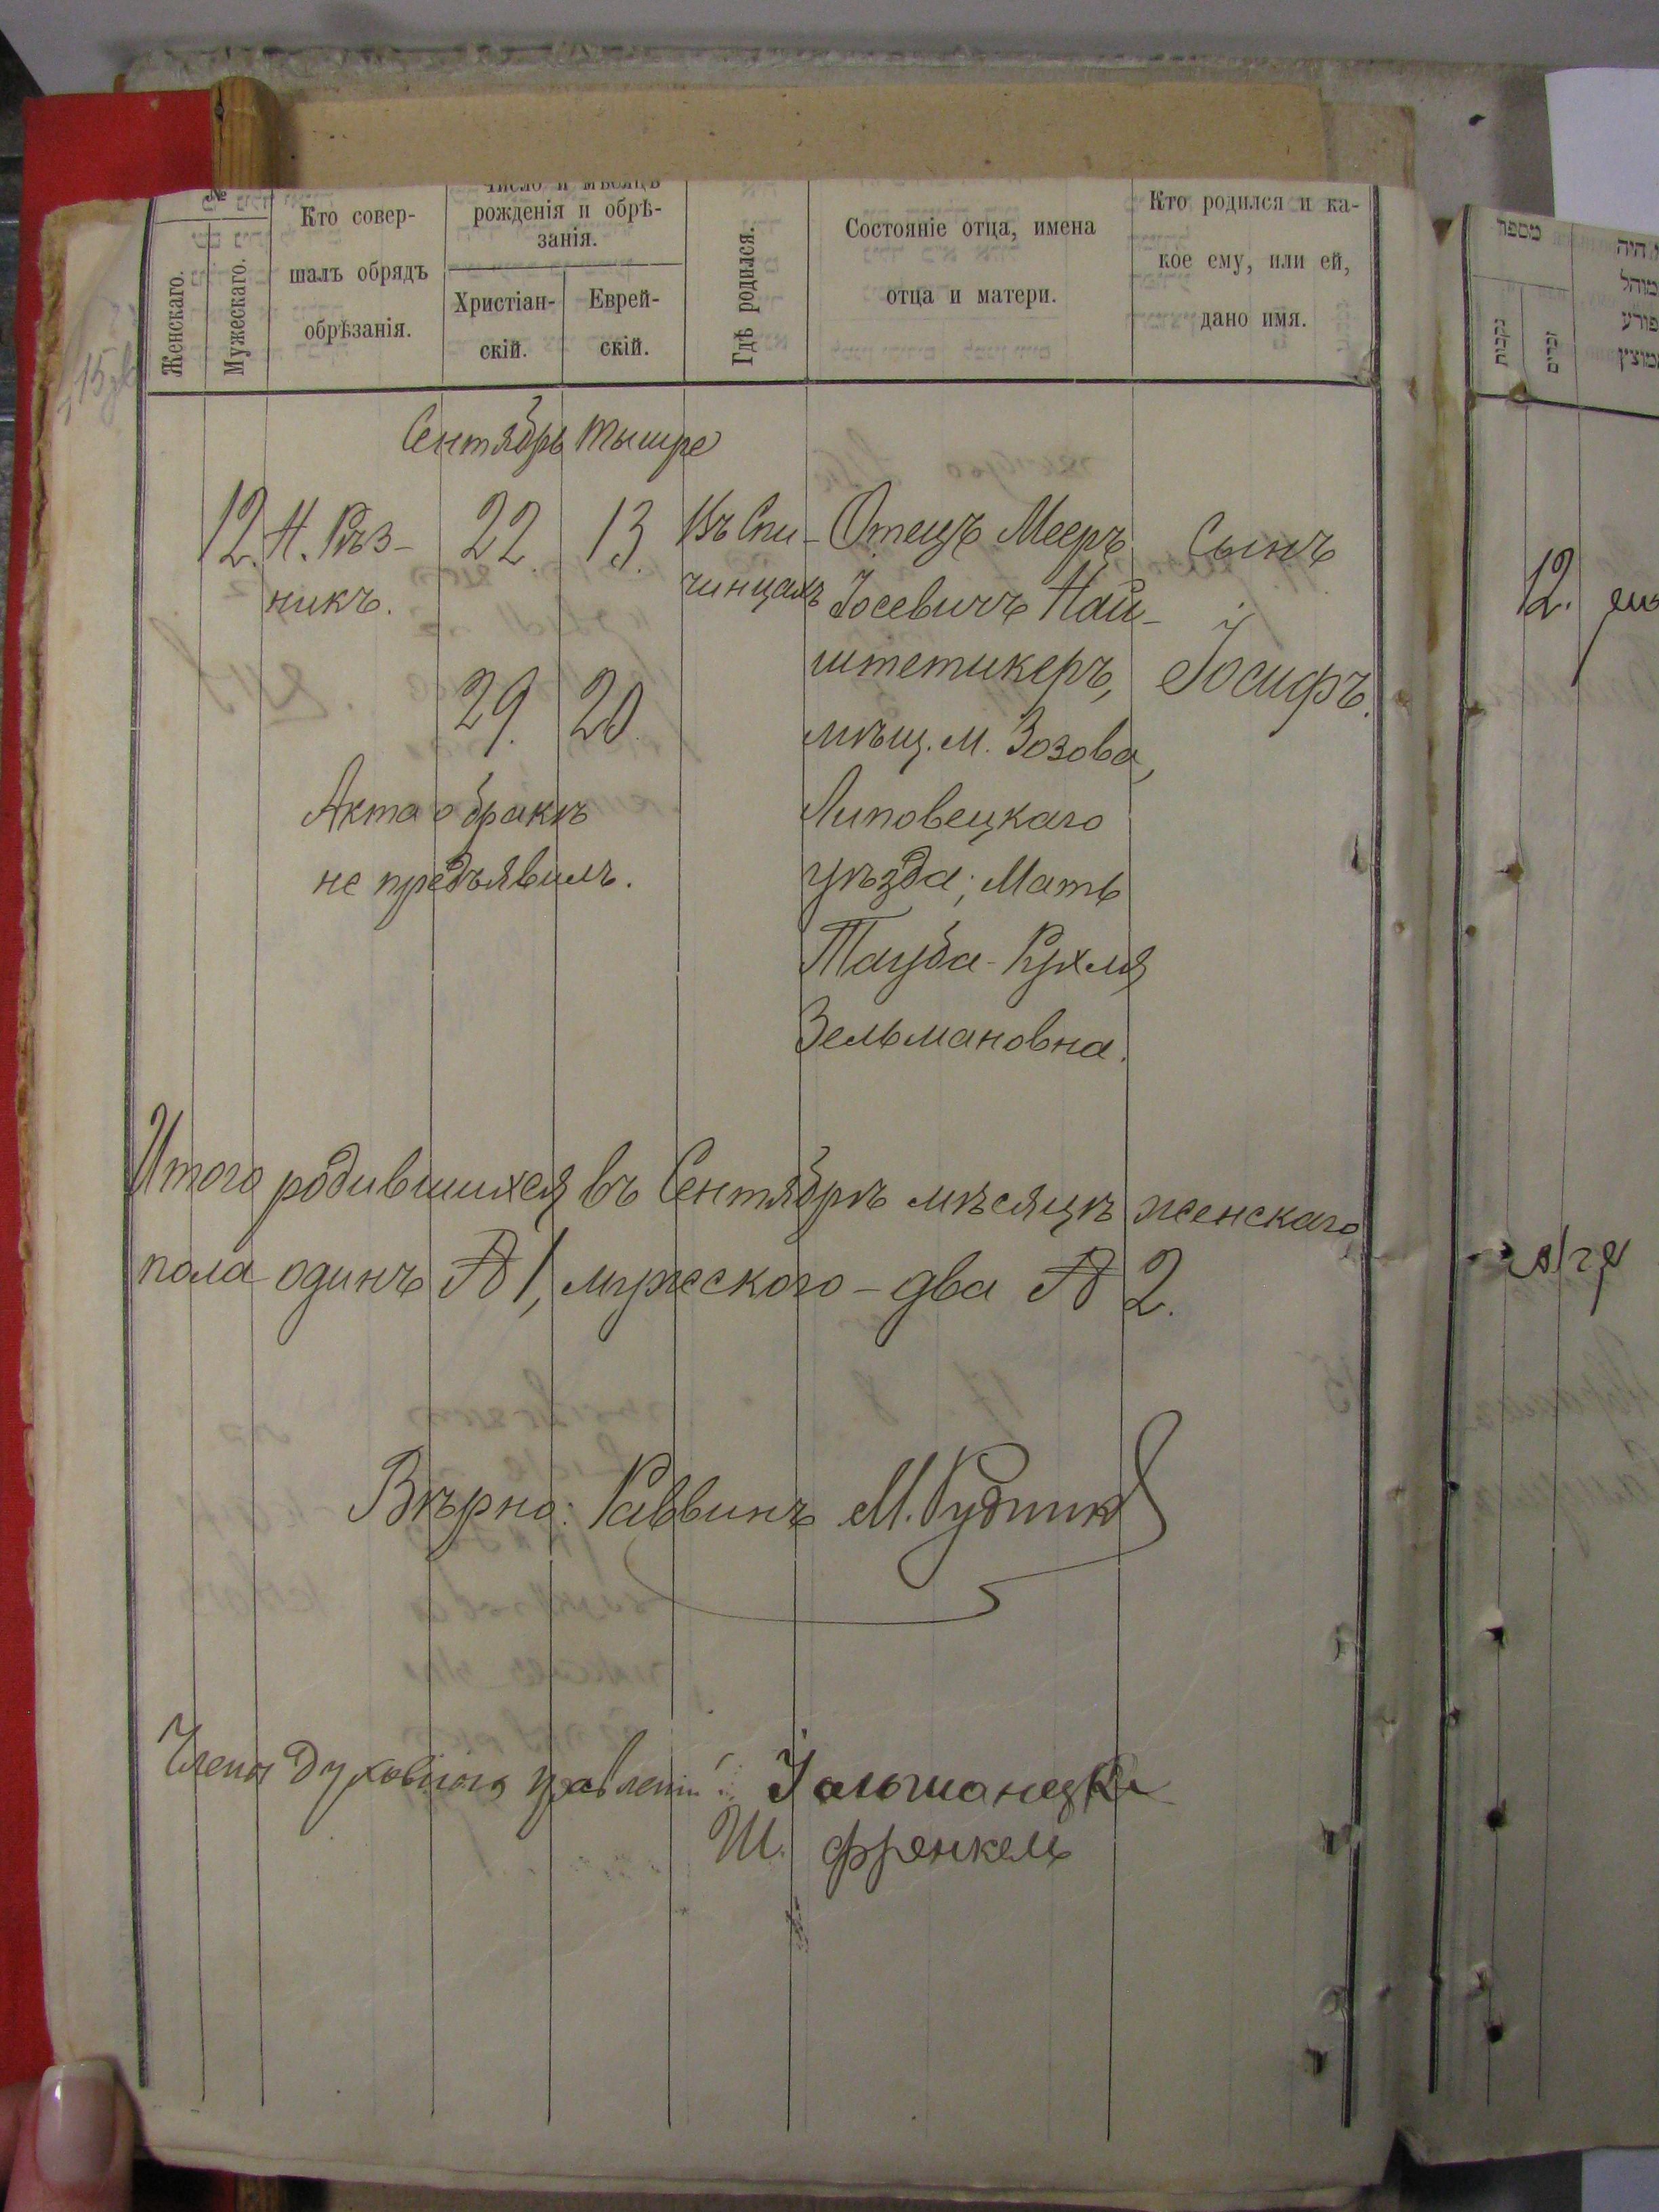 №
Женскаго.
Мужескаго.
Кто совер-
шалъ обрядъ
обрѣзанія.
Число и мѣсяцъ
рожденія и обрѣ-
занія.
Христіан-
скій.
Еврей-
скій.
Гдѣ родился.
Состояніе отца, имена
отца и матери.
Кто родился и ка-
кое ему, или ей,
дано имя.
Сентябрь Тышре
12. Н. Рѣз-
никъ.
22 13.
29. 20.
Въ Спи-
чинцахъ
Отецъ Мееръ
Іосевичъ Най-
штетикеръ,
мѣщ. м. Зозова,
Липовецкаго
уѣзда; Мать
Тауба-Рухля
Зельмановна.
Сынъ
Іосифъ.
Акта о бракѣ
не предъявилъ.
Итого родившихся въ Сентябрѣ мѣсяцѣ женскаго
пола одинъ № 1, мужеского - два № 2.
Вѣрно: Раввинъ М. Рудник
Члены Духовнаго правленія:
Ш. Френкель
מספר
נקבות
זכרים
היה
מוהל
פורע
מוצץ
12.